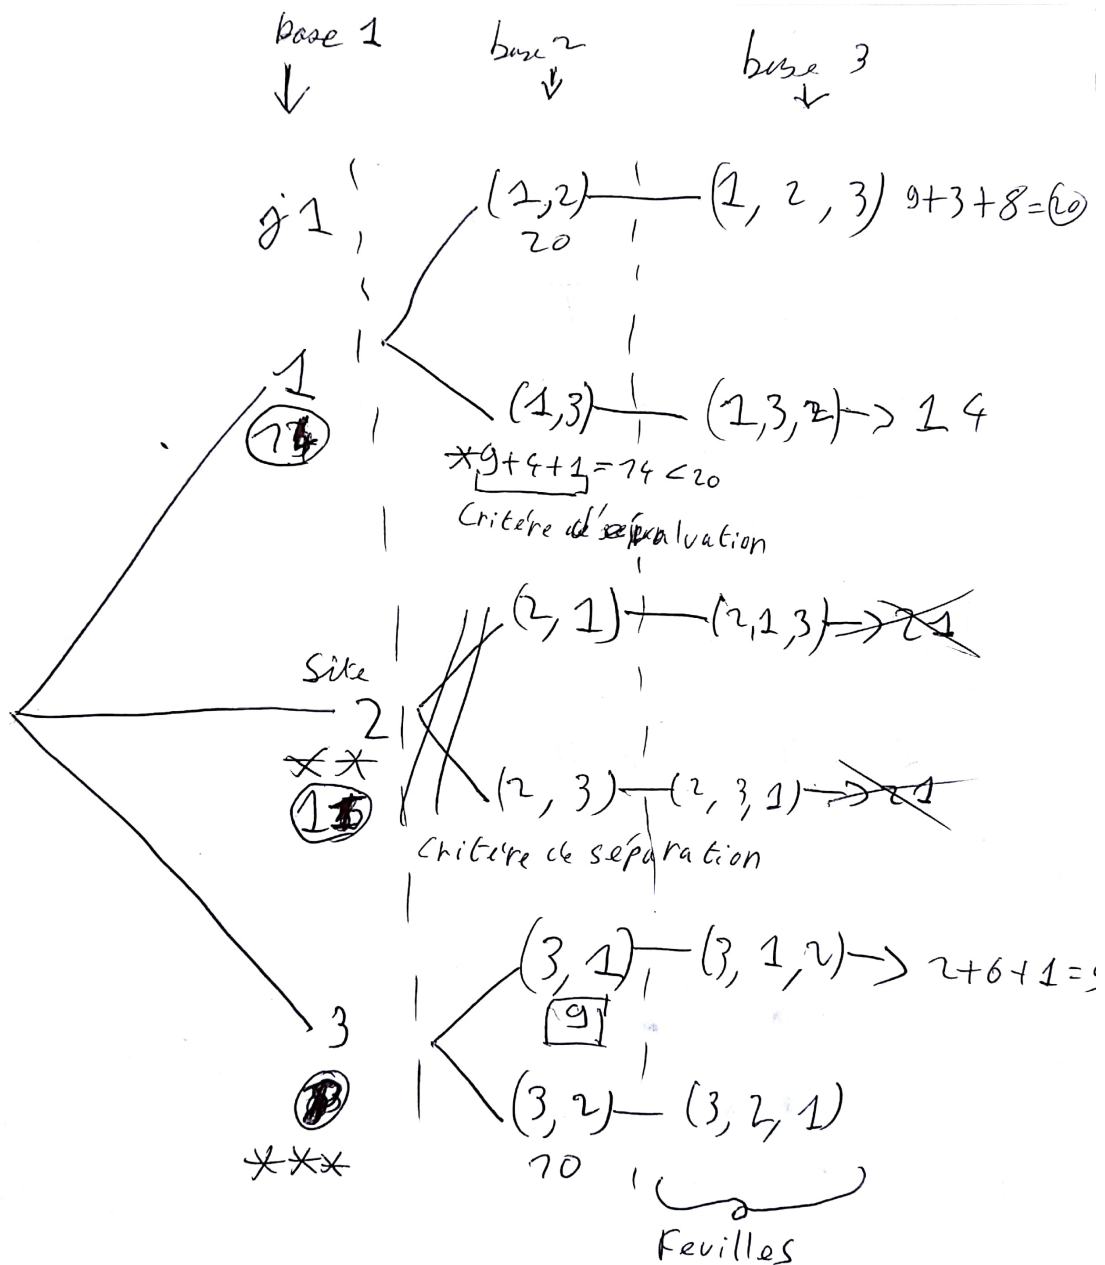 base 1
base 2
base 3
j1
(1,2)
20
(1, 2, 3) 9+3+8=20
1
(1,3)
(1,3,2) → 14
*9+4+1=14<20
Critère d'évaluation
(2, 1)
(2,1,3) → 21
Site
2
**
(2, 3)
(2, 3, 1) → 21
Critère de séparation
(3, 1)
(3, 1, 2) → 2+6+1=9
9
3
***
(3, 2)
(3, 2, 1)
10
Feuilles